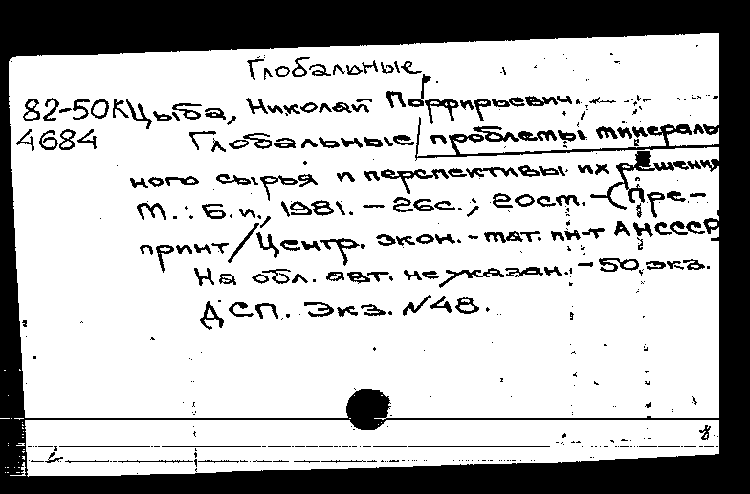 Глобальные
82-50К Цыба, Николай Порфирьевич.
4684 Глобальные проблемы минераль
ного сырья и перспективы их решения
М.: Б.и., 1981. - 26с.; 20см. - (Пре-
принт / Центр. экон.-мат. ин-т АНСССР
На обл. авт. не указан. - 50 экз.
ДСП. Экз. №48.